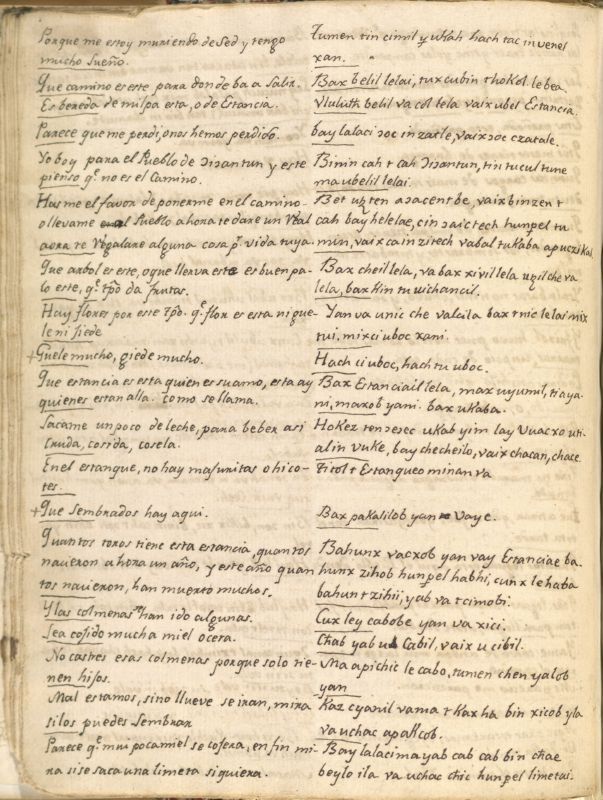 Porque me estoy muriendo de Sed y tengo
mucho Sueño.
Que camino es este para donde ba a Salir.
Es bereda de milpa esta, o de Estancia.
Parece que me perdi, o nos hemos perdido.
Yo boy para el Pueblo de Ɔiɔantun y este
pienso q.e no es el Camino.
Has me el favor de ponerme en el camino
o llevame al Pueblo ahora te dare un Real
aora te Regalare alguna cosa p.r vida tuya
Que arbol es este, o que lleva este es buen pa-
lo este, q.e tpõ da frutas.
Hay flores por este tpõ. q.e flor es esta ni gue-
le ni jiede
Guele mucho, giede mucho.
Que estancia es esta quien es su amo, esta ay
quienes estan alla. como se llama.
Sacame un poco de leche, para beber asi
Cruda, cosida, cosela.
En el estanque, no hay mas unitas o hico-
tes.
Que Sembrados hay aqui.
Quantos toros tiene esta estancia, quantos
navieron ahora un año, y este año quan
tos navieron, han muerto muchos.
Y las colmenas han ido algunas.
Sea cojido mucha miel o cera.
No castres esas colmenas porque solo tie-
nen hijos.
Mal estamos, sino llueve se iran, mira
si los puedes Sembrar
Parece q.e mui poca miel se cojera, en fin mi-
ra si se saca una limeta siquiera.
Tumen tin cimil y ukah hach tac in venel
xan.
Bax belil lelai, tux cubin t hokol le bea.
Vluluth belil va col lela vaix ubel Estancia.
bay lalaci ɔoc in zatle, vaix ɔoc czatale.
Binin cah t cah Ɔiɔantun, tin tucul tune
ma u belil lelai.
Bet uɔ ten aɔacent be, vaix binzen t
cah bay helelae, cin ɔaic tech hunpel tu
mun, vaix ca in zitech vabal tukaba apuczikal
Bax cheil lela, va bax xivil lela uɔil che va
lela, bax kin tu uichancil.
Yan va unic che valcila bax t nic le las mix
tui, mix ci uboc xani.
Hach ci uboc, hach tu uboc.
Bax Estanciail lela, max uyumil, ti aya-
ni, maxob yani. bax ukaba.
Hokez ten ɔeɔec ukab yim lay Vuacxo uti-
al in vuke, bay checheilo, vaix chacan, chace.
Ti tol t Estanqueo minan va
Bax pakalilob yan Vaye.
Bahunx vacxob yan vay Estanciae ba-
hunx zihob hunpel habhi, cunx le haba
bahunt zihii, yab va t cimobi.
Cux ley cabobe yan va xici.
Chab yab u Cabil, vaix u cibil.
Ma apichic le cabo, tumen chen yalob
yan
Kaz cyanil vama t kax ha bin xicob yla
va uchac apakcob.
Bay lalaci ma yab cab cab bin chae
beylo ila va uchac chic hunpel limetai.